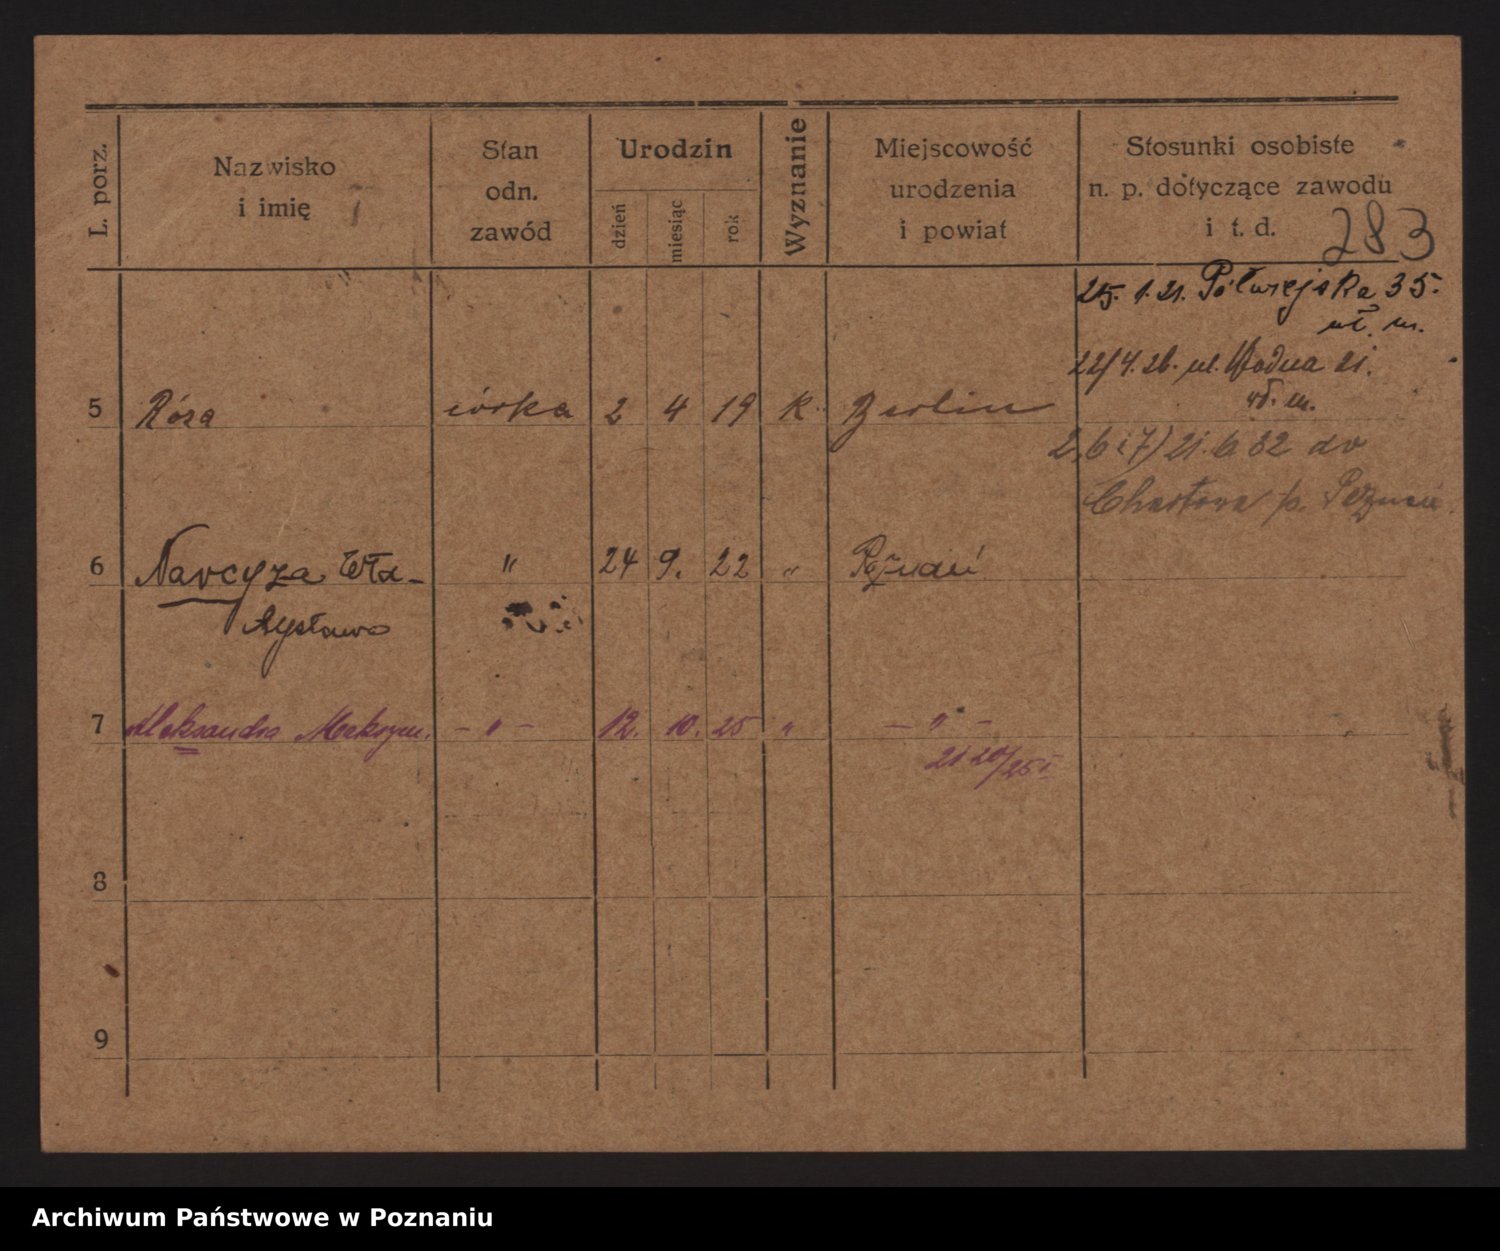 L. porz.
Nazwisko
i imię
Stan
odn.
zawód
Urodzin
dzień
miesiąc
rok
Wyznanie
Miejscowość
urodzenia
i powiat
Stosunki osobiste
n. p. dotyczące zawodu
i t. d.
283
25. 1. 21. Półwiejska 35.
22/4. 26. ul. Wodna 21.
5 Róza córka 2 4 19 K. Berlin
2,6 i 7) 21. 6 32 do
Chartowa p. Poznań.
6 Narcyza Wła- " 24 9. 22 " Poznań
dysława
7 Aleksandra Maksym. - " - 12. 10. 25 " - " -
8
9
Archiwum Państwowe w Poznaniu